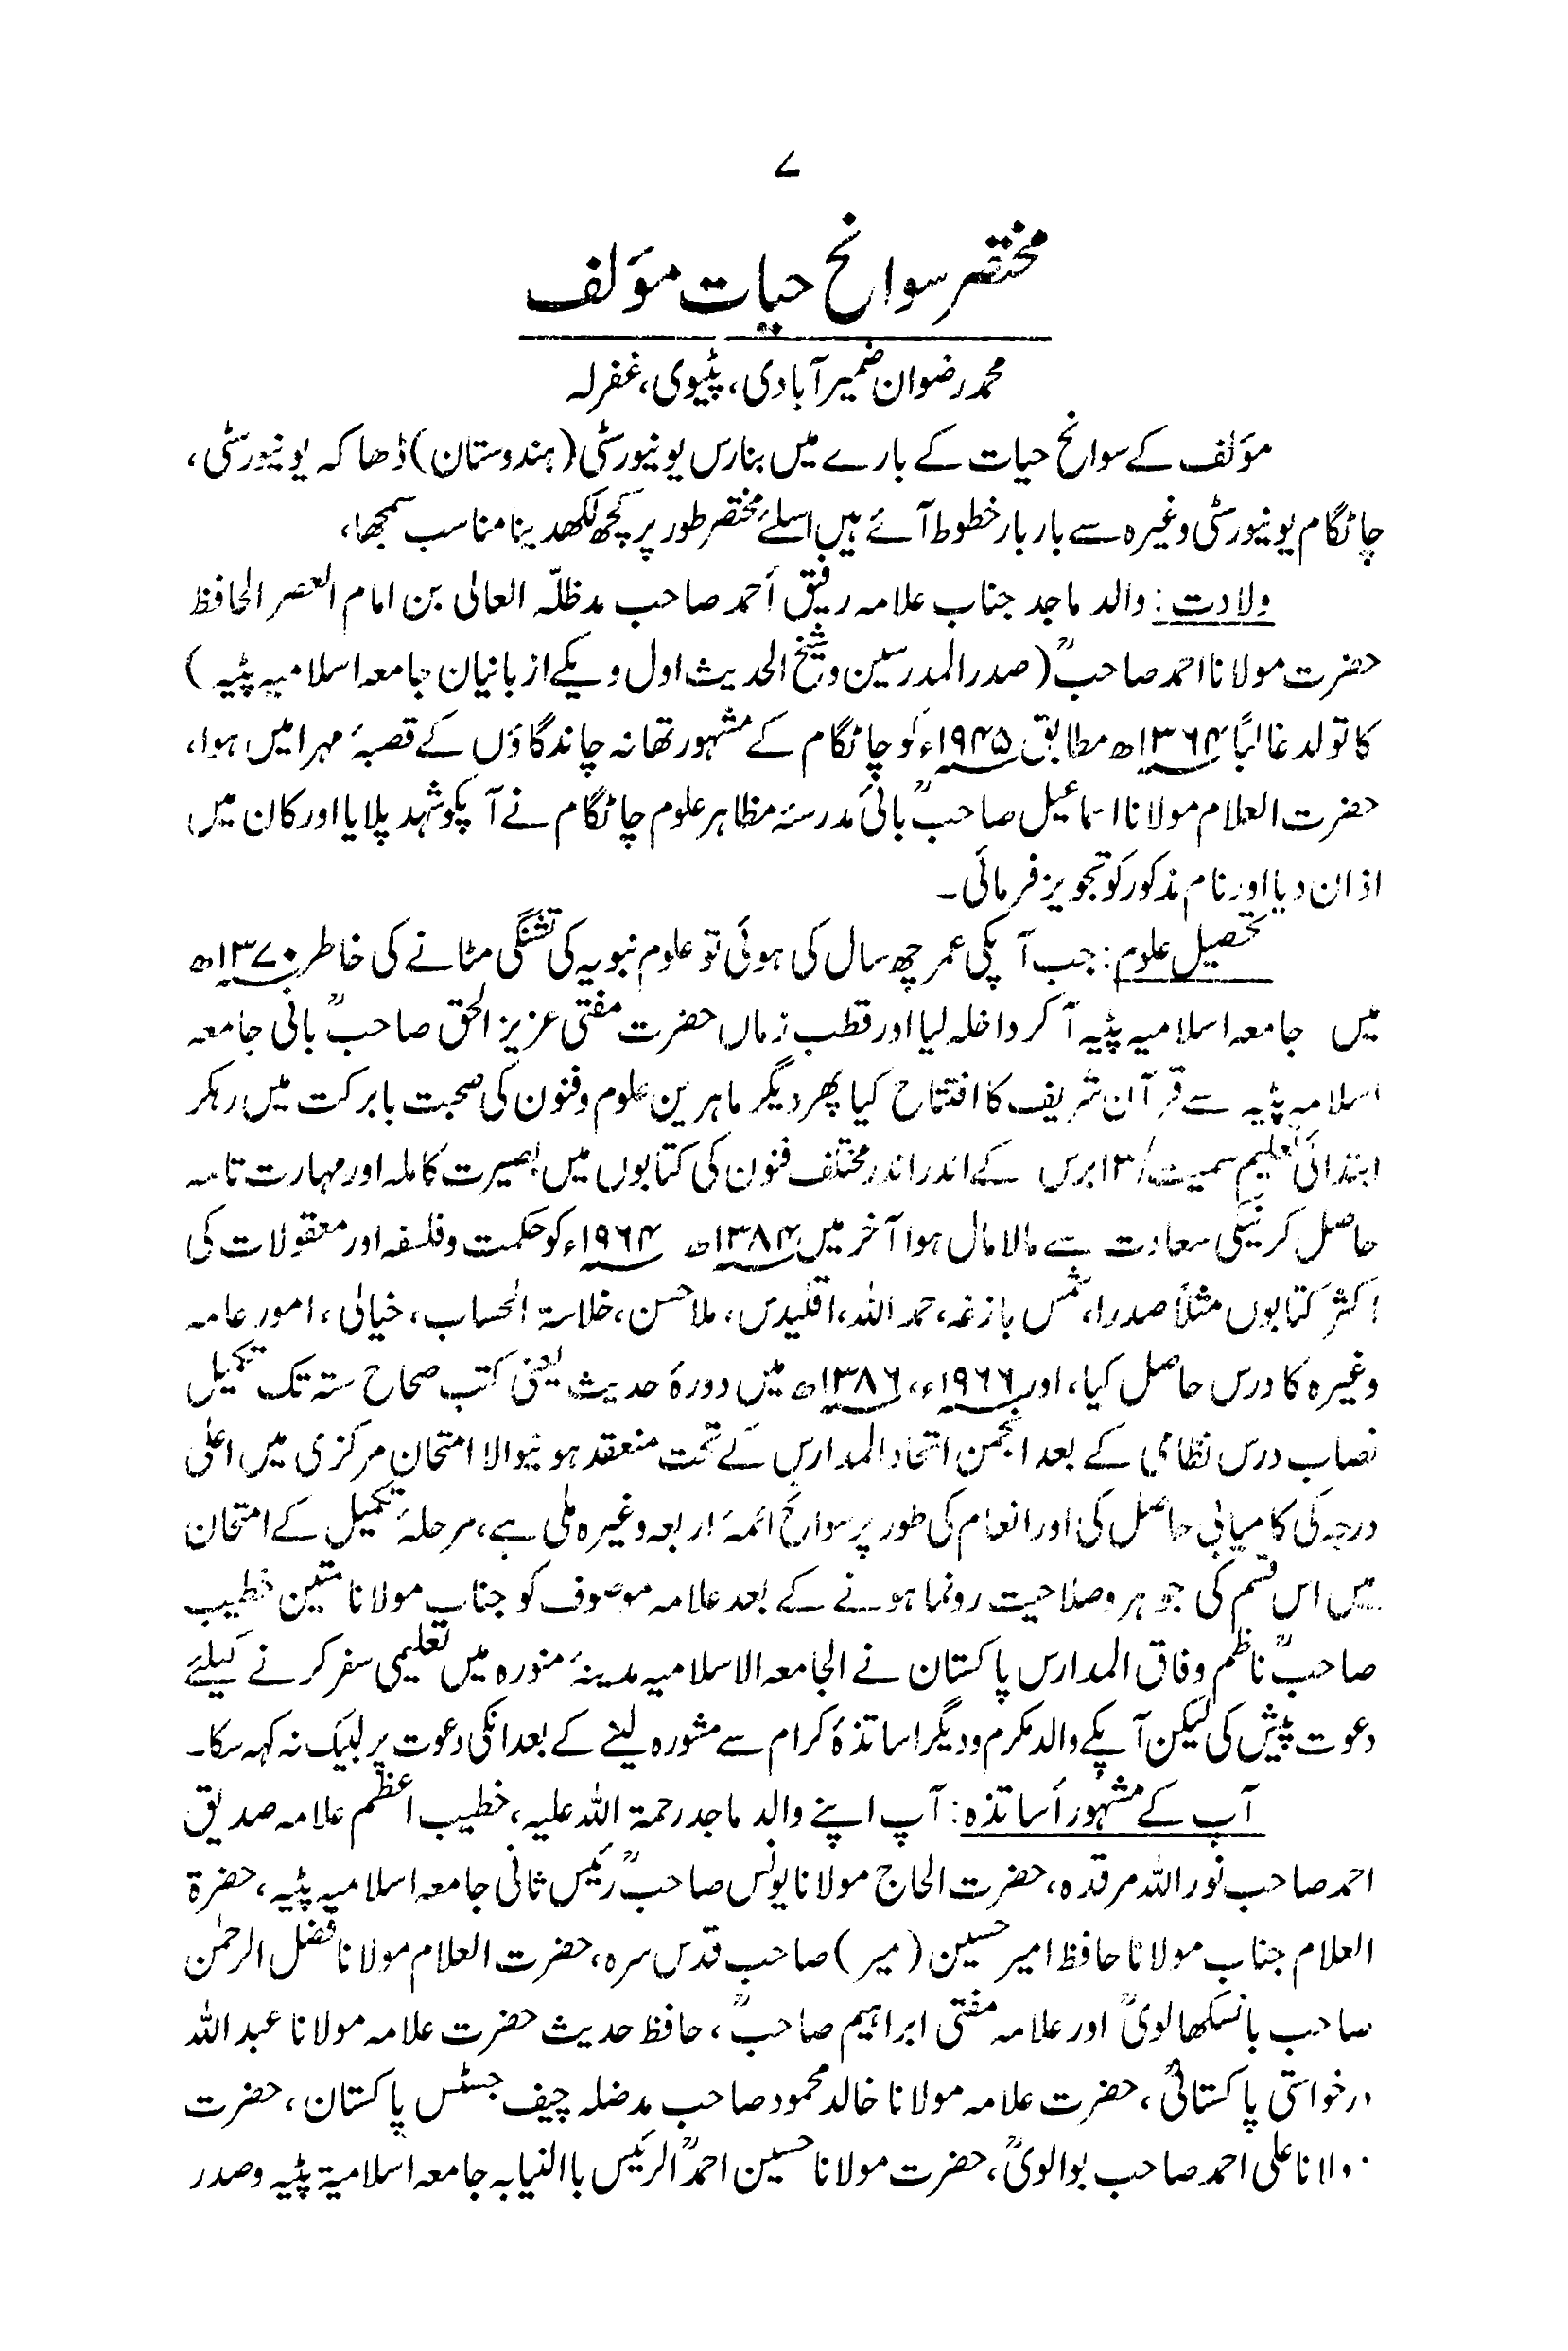 ۷
مختصر سوانح حیات مؤلف
محمد رضوان ضمیر آبادی، پٹیوی، غفرلہ
مؤلف کے سوانح حیات کے بارے میں بنارس یونیورسٹی (ہندوستان) ڈھاکہ یونیورسٹی،
چاٹگام یونیورسٹی وغیرہ سے بار بار خطوط آئے ہیں اسلئے مختصر طور پر کچھ لکھدینا مناسب سمجھا،
ولادت: والد ماجد جناب علامہ رفیق أحمد صاحب مدظلّہ العالی بن امام العصر الحافظ
حضرت مولانا احمد صاحبؒ (صدر المدرسین وشیخ الحدیث اول ویکے از بانیان جامعہ اسلامیہ پٹیہ)
کا تولد غالبًا ۱۳۶۴ھ مطابق ۱۹۴۵ء کو چاٹگام کے مشہور تھانہ چاندگاؤں کے قصبۂ مہرا میں ہوا،
حضرت العلام مولانا اسماعیل صاحبؒ بانئ مدرسۂ مظاہر علوم چاٹگام نے آپکو شہد پلایا اور کان میں
اذان دیا اور نام مذکور کو تجویز فرمائی۔
تحصیل علوم: جب آپکی عمر چھ سال کی ہوئی تو علوم نبویہ کی تشنگی مٹانے کی خاطر ۱۳۷۰ھ
میں جامعہ اسلامیہ پٹیہ آکر داخلہ لیا اور قطب زماں حضرت مفتی عزیز الحق صاحبؒ بانی جامعہ
اسلامیہ پٹیہ سے قرآن شریف کا افتتاح کیا پھر دیگر ماہرین علوم وفنون کی صحبت بابرکت میں رہکر
ابتدائی تعلیم سمیت/۱۳ برس کے اندر اندر مختلف فنون کی کتابوں میں بصیرت کاملہ اور مہارت تامہ
حاصل کرنیکی سعادت سے مالا مال ہوا آخر میں ۱۳۸۴ھ ۱۹۶۴ء کو حکمت وفلسفہ اور معقولات کی
اکثر کتابوں مثلاً صدرا، شمس بازغہ، حمد اللہ، اقلیدس، ملا حسن، خلاسۃ الحساب، خیالی، امور عامہ
وغیرہ کا درس حاصل کیا، اور ۱۹۶۶ء، ۱۳۸۶ھ میں دورۂ حدیث یعنی کتب صحاح ستہ تک تکمیل
نصاب درس نظامی کے بعد انجمن اتحاد المدارس کے تحت منعقد ہونیوالا امتحان مرکزی میں اعلی
درجہ کی کامیابی حاصل کی اور انعام کی طور پر سوانح ائمۂ اربعہ وغیرہ ملی ہے، مرحلۂ تکمیل کے امتحان
میں اس قسم کی جوہر وصلاحیت رونما ہونے کے بعد علامہ موصوف کو جناب مولانا متین خطیب
صاحبؒ ناظم وفاق المدارس پاکستان نے الجامعہ الاسلامیہ مدینۂ منورہ میں تعلیمی سفر کرنے کیلئے
دعوت پیش کی لیکن آپکے والد مکرم ودیگر اساتذۂ کرام سے مشورہ لینے کے بعد انکی دعوت پر لبیک نہ کہہ سکا۔
آپ کے مشہور أساتذہ: آپ اپنے والد ماجد رحمۃ اللہ علیہ، خطیب اعظم علامہ صدیق
احمد صاحب نور اللہ مرقدہ، حضرت الحاج مولانا یونس صاحبؒ رئیس ثانی جامعہ اسلامیہ پٹیہ، حضرۃ
العلام جناب مولانا حافظ امیر حسین (میر) صاحب قدس سرہ، حضرت العلام مولانا فضل الرحمٰن
صاحب بانسکھالویؒ اور علامہ مفتی ابراہیم صاحبؒ، حافظ حدیث حضرت علامہ مولانا عبد اللہ
درخواستی پاکستانیؒ، حضرت علامہ مولانا خالد محمود صاحب مدضلہ چیف جسٹس پاکستان، حضرت
مولانا علی احمد صاحب بوالویؒ، حضرت مولانا حسین احمدؒ الرئیس باالنیابہ جامعہ اسلامیۃ پٹیہ وصدر